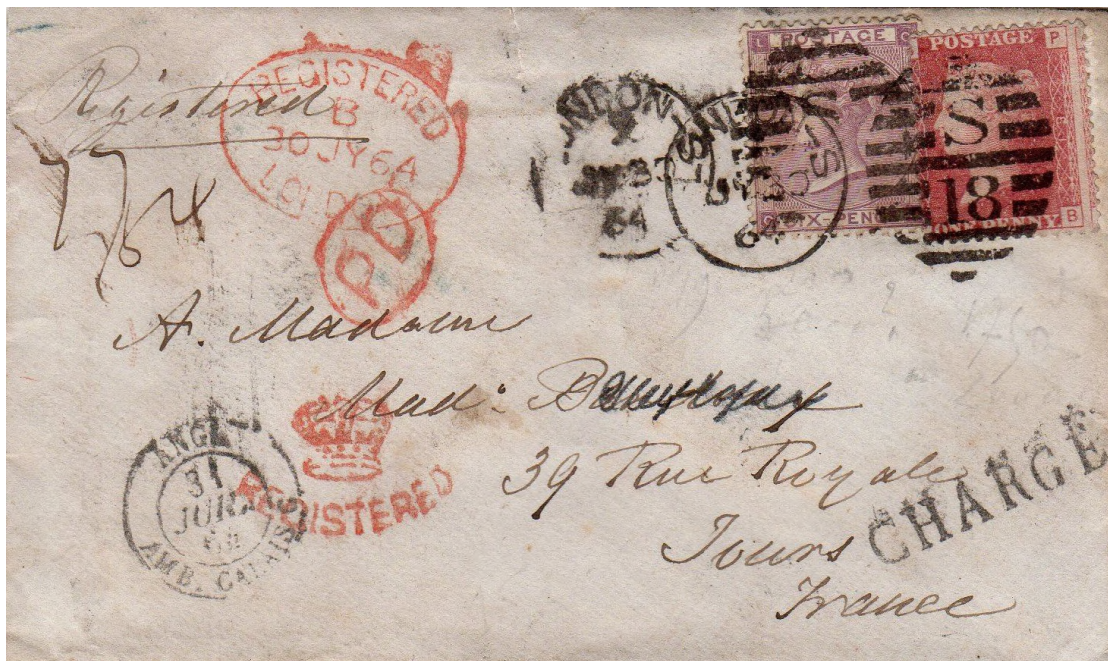 Registered
REGISTERED
B
30 JY 64
LONDON
PD
LONDON-S
64
LONDON-S
64
L G
POSTAGE
SIX-PENCE
POSTAGE P
S
18
ONE PENNY B
A. Madame
Mad:
39 Rue Royale
Tours
France
REGISTERED
CHARGE
ANGL.
31
JUIL
64
AMB. CALAIS